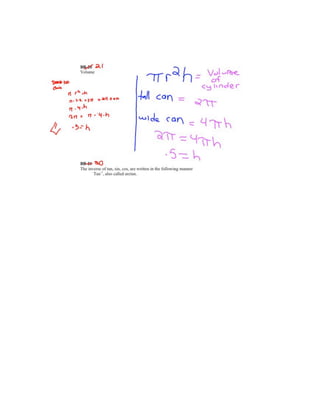 21
Volume
π r² · h
π · 4 · h
2π = π · 4 · h
.5 = h
πr²h = Volume of cylinder
tall can = 2π
wide can = 4πh
2π = 4πh
.5 = h
30
The inverse of tan, sin, cos, are written in the following manner
Tan⁻, also called arctan.